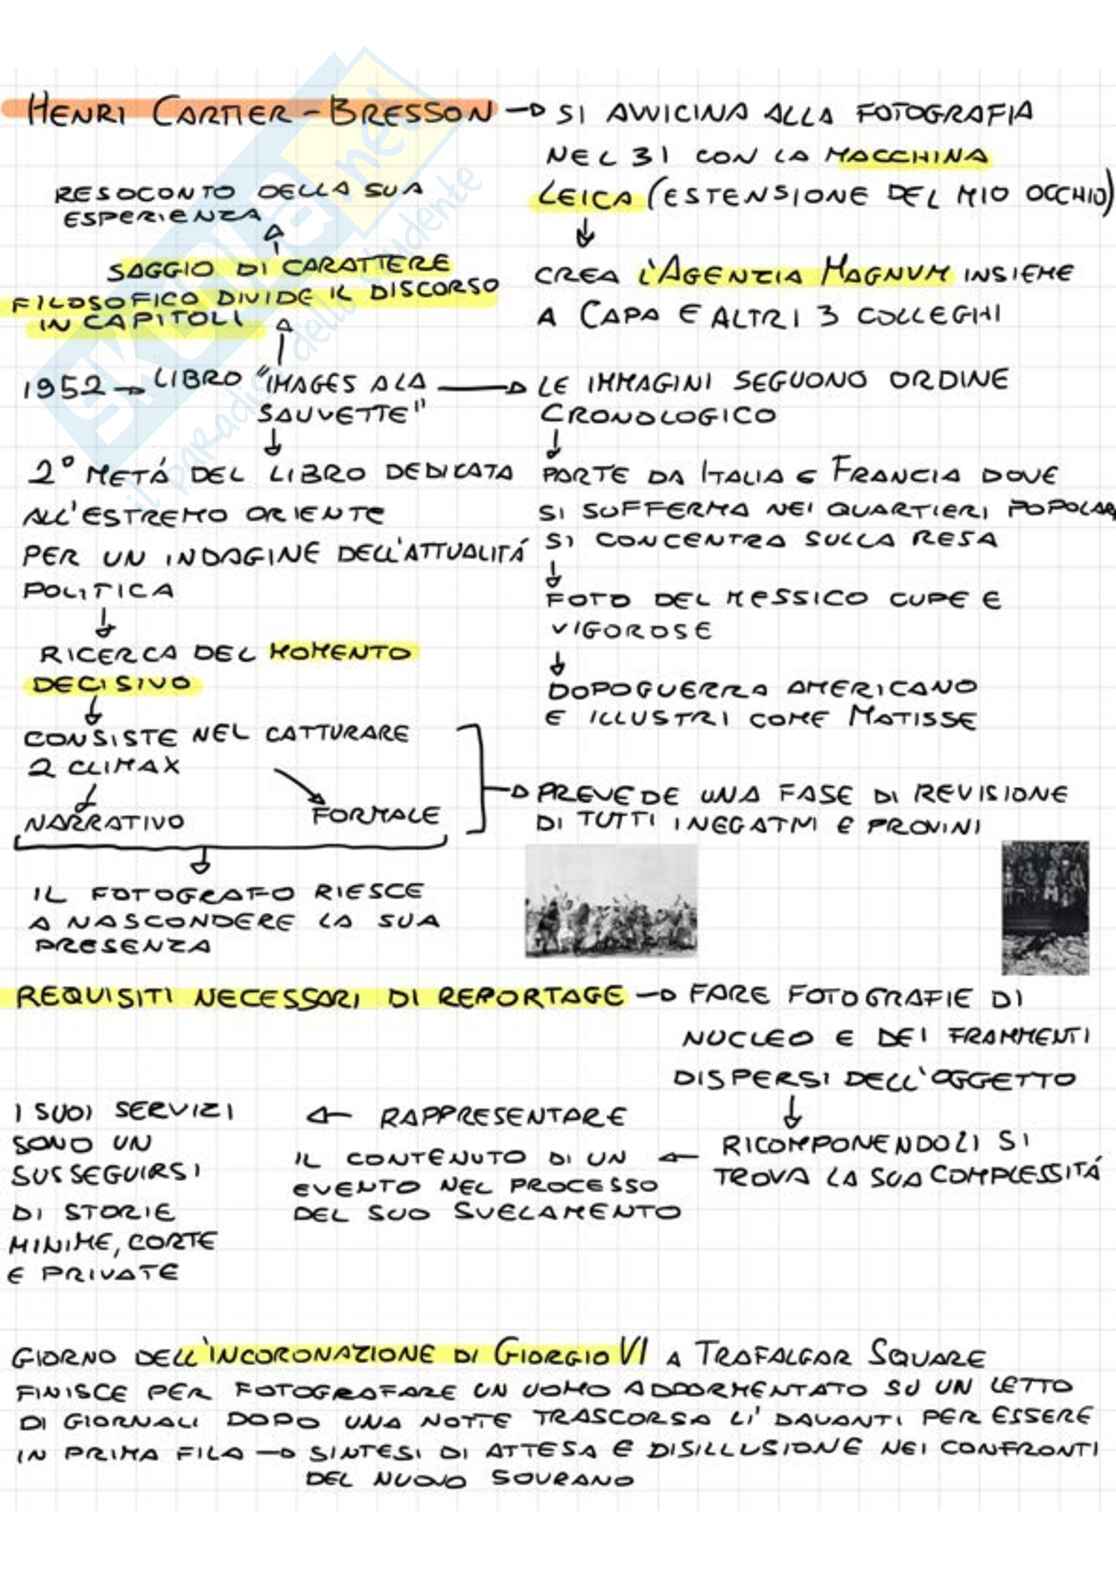 HENRI CARTIER-BRESSON → SI AVVICINA ALLA FOTOGRAFIA
NEL 31 CON LA MACCHINA
LEICA (ESTENSIONE DEL MIO OCCHIO)
CREA L'AGENZIA MAGNUM INSIEME
A CAPA E ALTRI 3 COLLEGHI
RESOCONTO DELLA SUA
ESPERIENZA
SAGGIO DI CARATTERE
FILOSOFICO DIVIDE IL DISCORSO
IN CAPITOLI
1952 → LIBRO "IMAGES A LA
SAUVETTE"
LE IMMAGINI SEGUONO ORDINE
CRONOLOGICO
PARTE DA ITALIA E FRANCIA DOVE
SI SOFFERMA NEI QUARTIERI POPOLAR
SI CONCENTRA SULLA RESA
FOTO DEL MESSICO CUPE E
VIGOROSE
DOPOGUERRA AMERICANO
E ILLUSTRI COME MATISSE
2° METÁ DEL LIBRO DEDICATA
ALL'ESTREMO ORIENTE
PER UN INDAGINE DELL'ATTUALITÁ
POLITICA
RICERCA DEL MOMENTO
DECISIVO
CONSISTE NEL CATTURARE
2 CLIMAX
NARRATIVO
FORMALE
→ PREVEDE UNA FASE DI REVISIONE
DI TUTTI I NEGATIVI E PROVINI
IL FOTOGRAFO RIESCE
A NASCONDERE LA SUA
PRESENZA
REQUISITI NECESSARI DI REPORTAGE → FARE FOTOGRAFIE DI
NUCLEO E DEI FRAMMENTI
DISPERSI DELL'OGGETTO
RICOMPONENDOLI SI
TROVA LA SUA COMPLESSITÁ
← RAPPRESENTARE
IL CONTENUTO DI UN ←
EVENTO NEL PROCESSO
DEL SUO SVELAMENTO
I SUOI SERVIZI
SONO UN
SUSSEGUIRSI
DI STORIE
MINIME, CORTE
E PRIVATE
GIORNO DELL'INCORONAZIONE DI GIORGIO VI A TRAFALGAR SQUARE
FINISCE PER FOTOGRAFARE UN UOMO ADDORMENTATO SU UN LETTO
DI GIORNALI DOPO UNA NOTTE TRASCORSA LI' DAVANTI PER ESSERE
IN PRIMA FILA → SINTESI DI ATTESA E DISILLUSIONE NEI CONFRONTI
DEL NUOVO SOVRANO
skuola.net
il paradiso dello studente